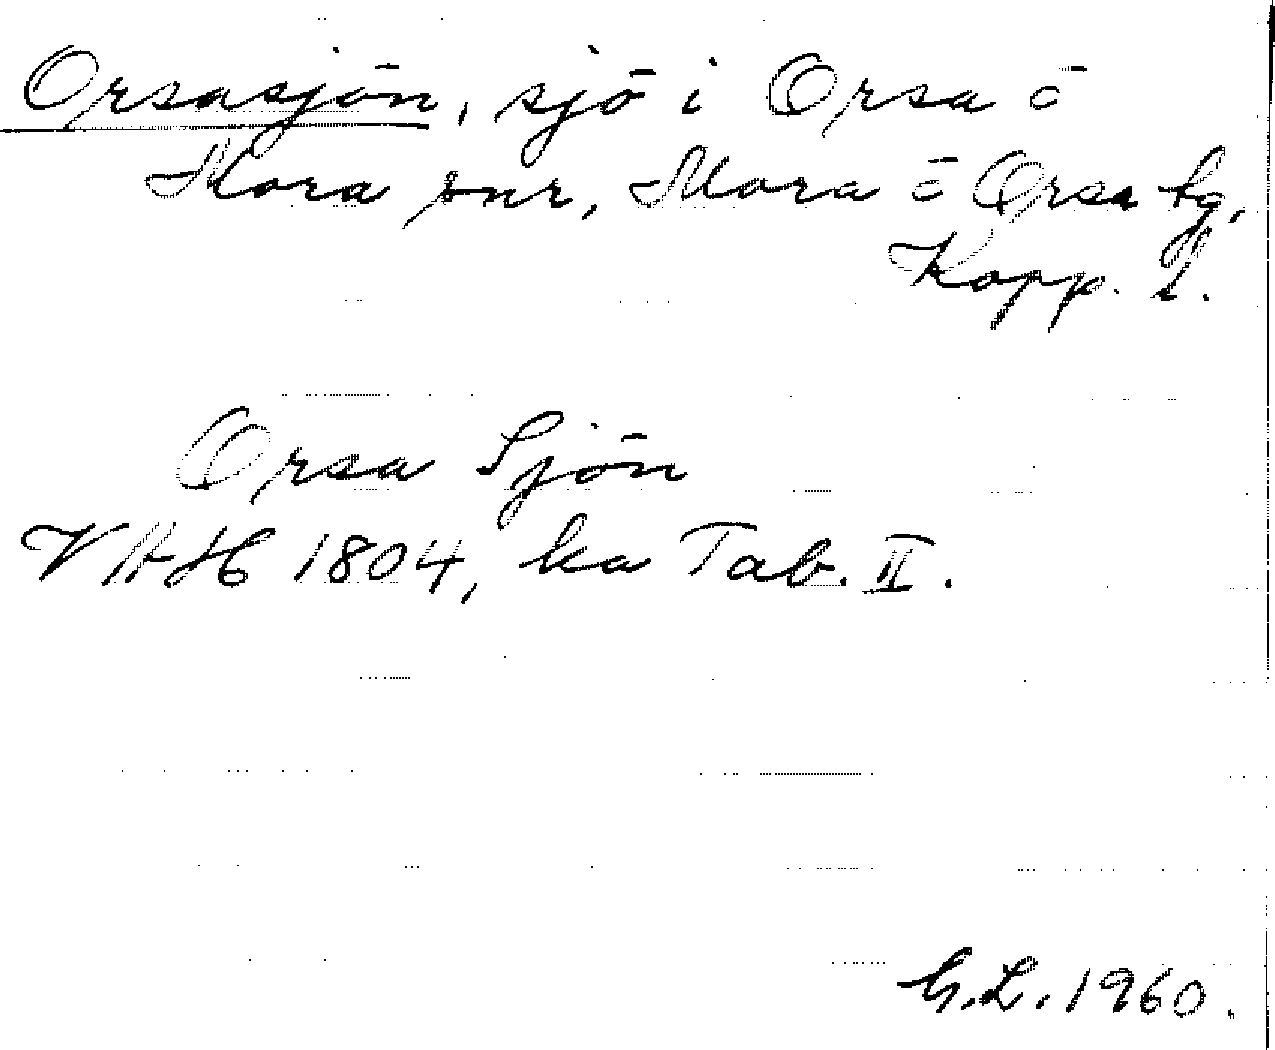 Orsasjön, sjö i Orsa o
Mora snr, Mora o Orsa tg,
Kopp. l.
Orsa Sjön
VAH 1804, ka Tab. II.
G.L. 1960.